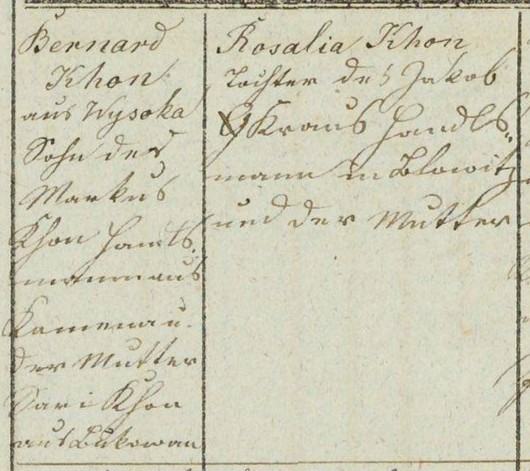 Bernard
Khon
aus Wysoka
Sohn des
Markus
Khon Handls-
mann aus
Kamenau.
der Mutter
Sari Khon
aus Bukowan
Rosalia Khon
Tochter des Jakob
Kraus Handls-
mann in Blowitz
und der Mutter